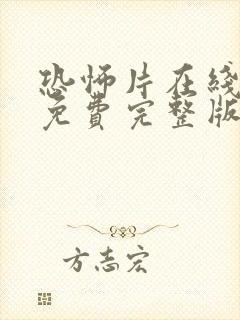 恐怖片在线
免費完整版
方志宏